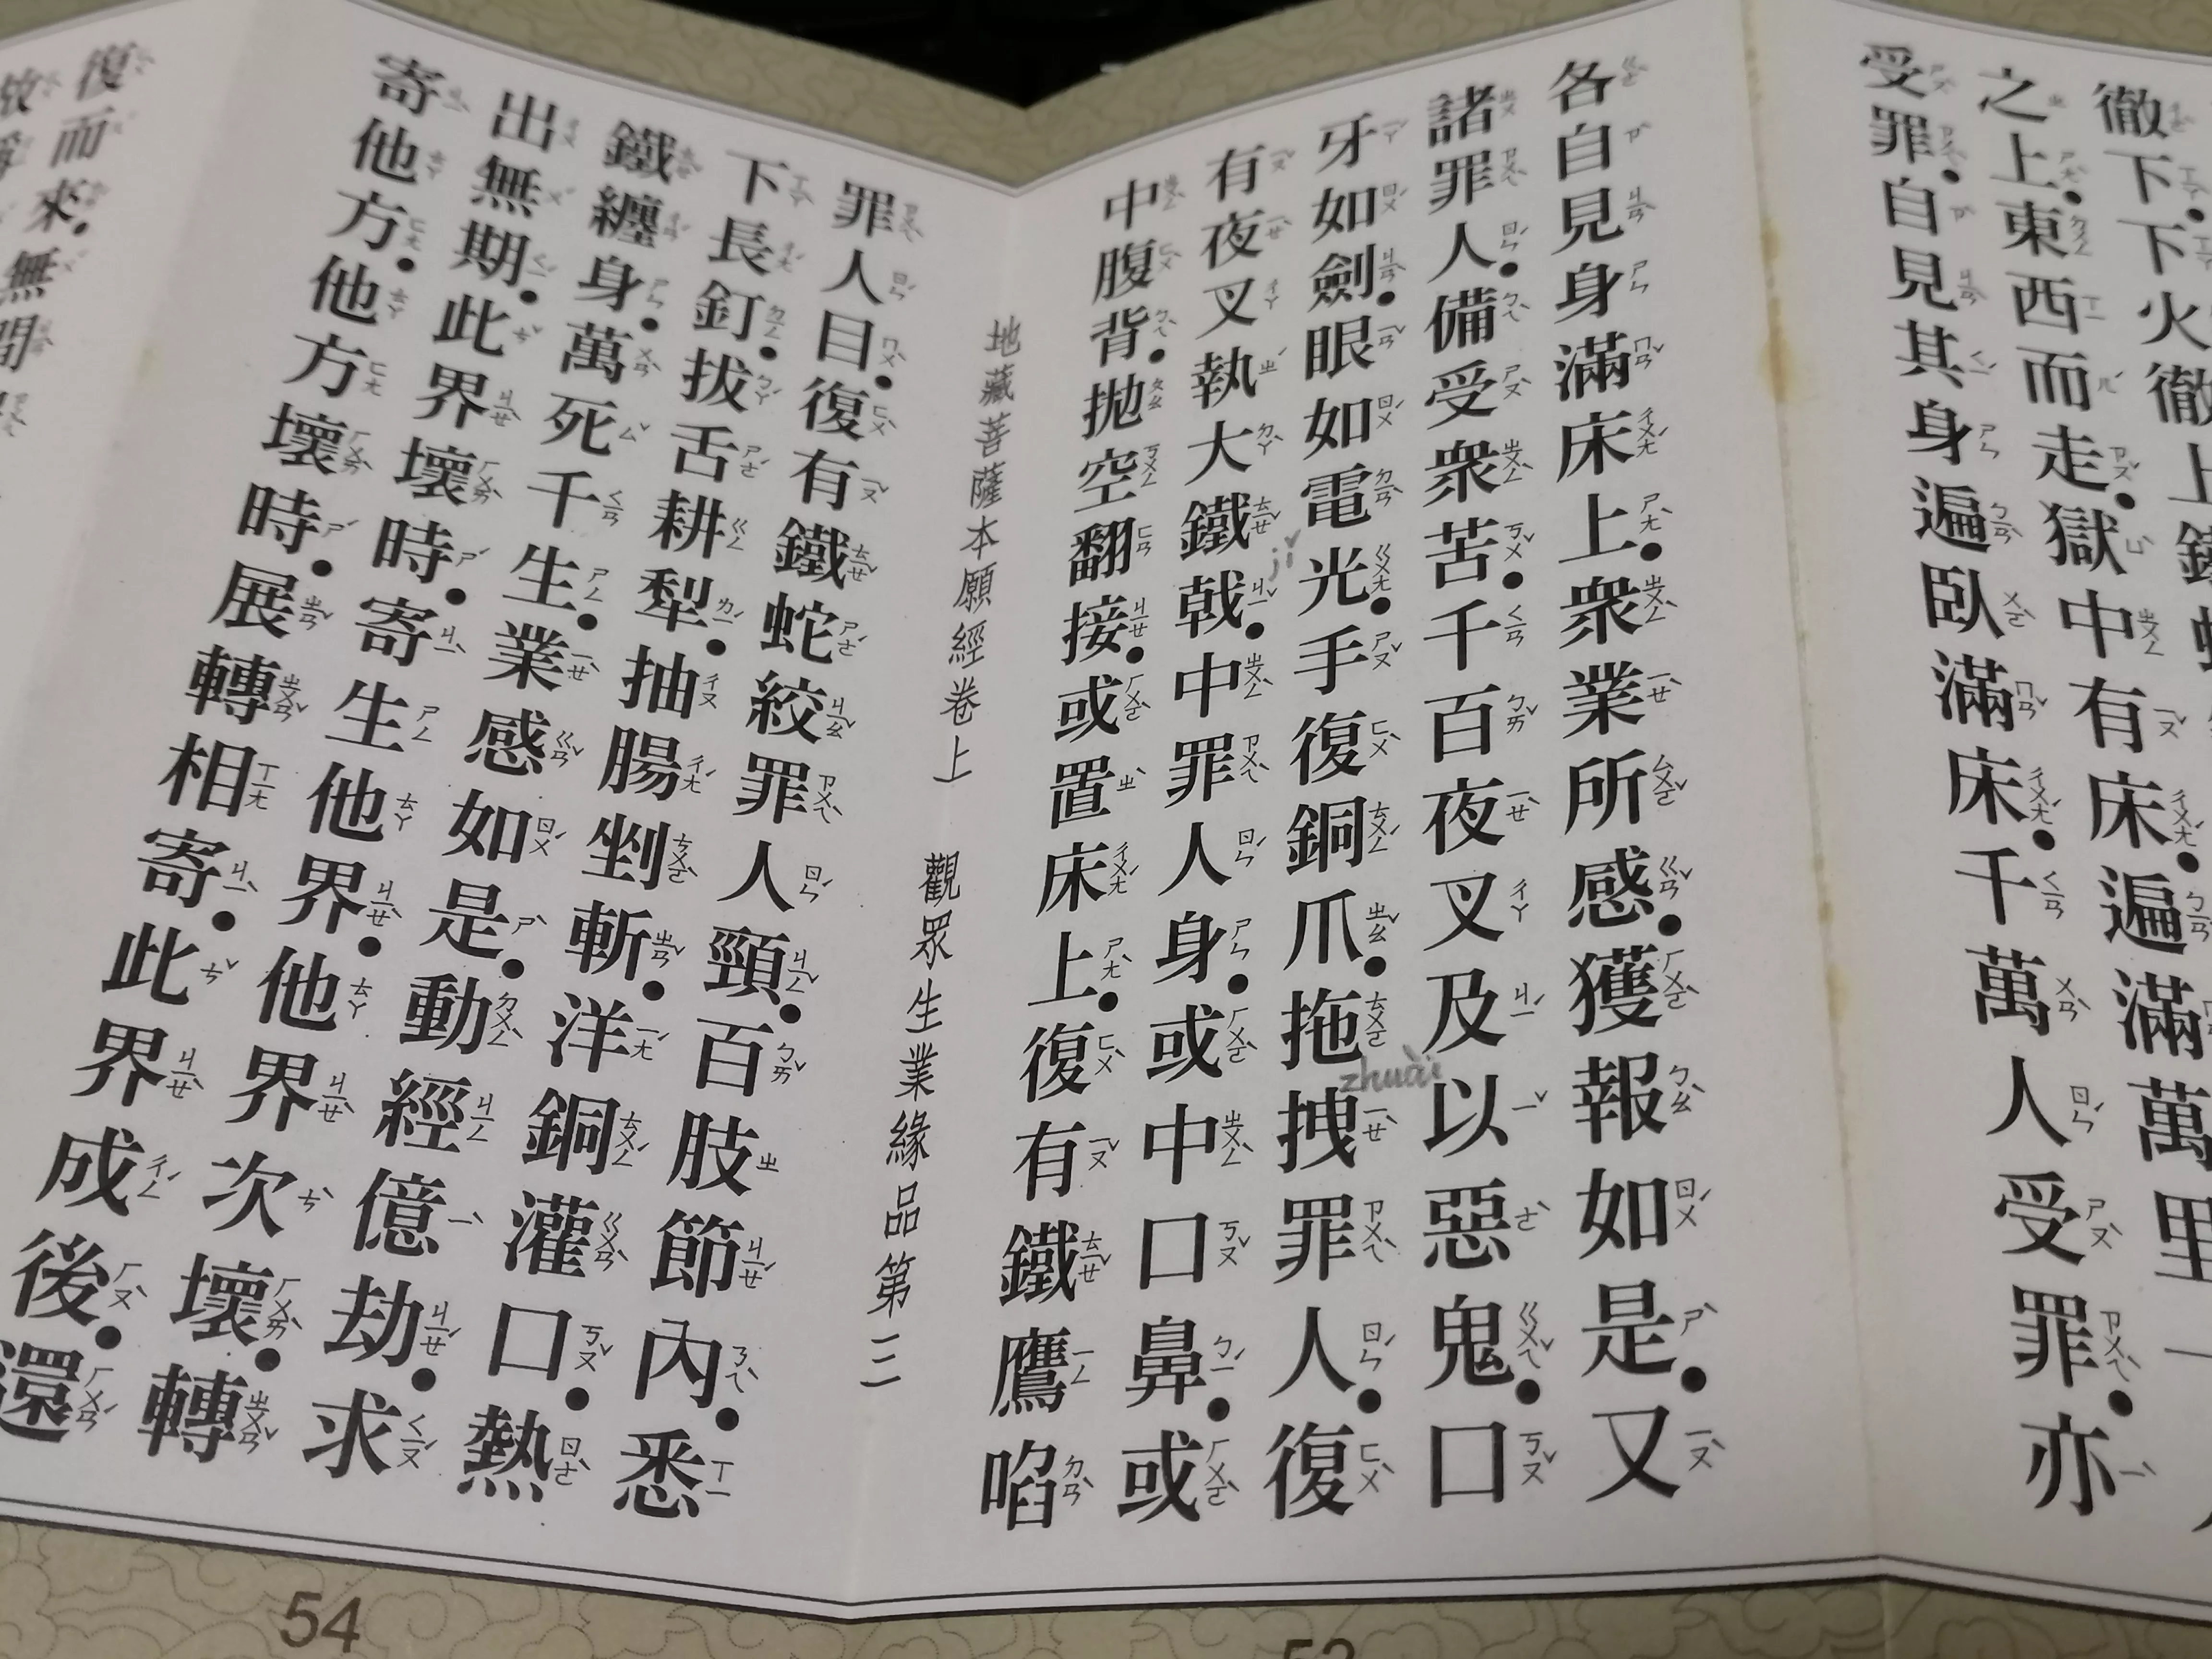 徹下．下火徹上
之上．東西而走．獄中有床．遍滿萬里一
受罪．自見其身遍臥滿床．千萬人受罪．亦
各自見身滿床上．衆業所感．獲報如是．又
諸罪人．備受衆苦．千百夜叉及以惡鬼．口
牙如劍．眼如電光．手復銅爪．拖拽罪人．復
zhuài
有夜叉執大鐵戟．中罪人身．或中口鼻．或
jǐ
中腹背．拋空翻接．或置床上．復有鐵鷹啗
地藏菩薩本願經卷上 觀眾生業緣品第三
罪人目．復有鐵蛇絞罪人頸．百肢節內．悉
下長釘．拔舌耕犁．抽腸剉斬．洋銅灌口．熱
鐵纏身．萬死千生．業感如是．動經億劫．求
出無期．此界壞時．寄生他界．他界次壞．轉
寄他方．他方壞時．展轉相寄．此界成後．還
復而來．無間
54